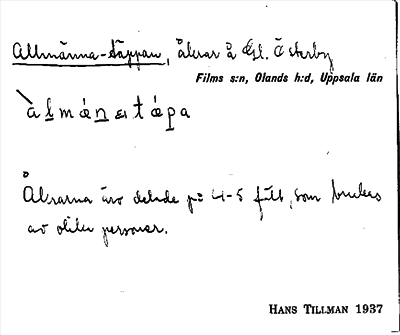 Allmänna-täppan, åkrar å Gl. Österby
Films s:n, Olands h:d, Uppsala län
Åkrarna äro delade på 4-5 fält, som brukas
av olika personer.
HANS TILLMAN 1937